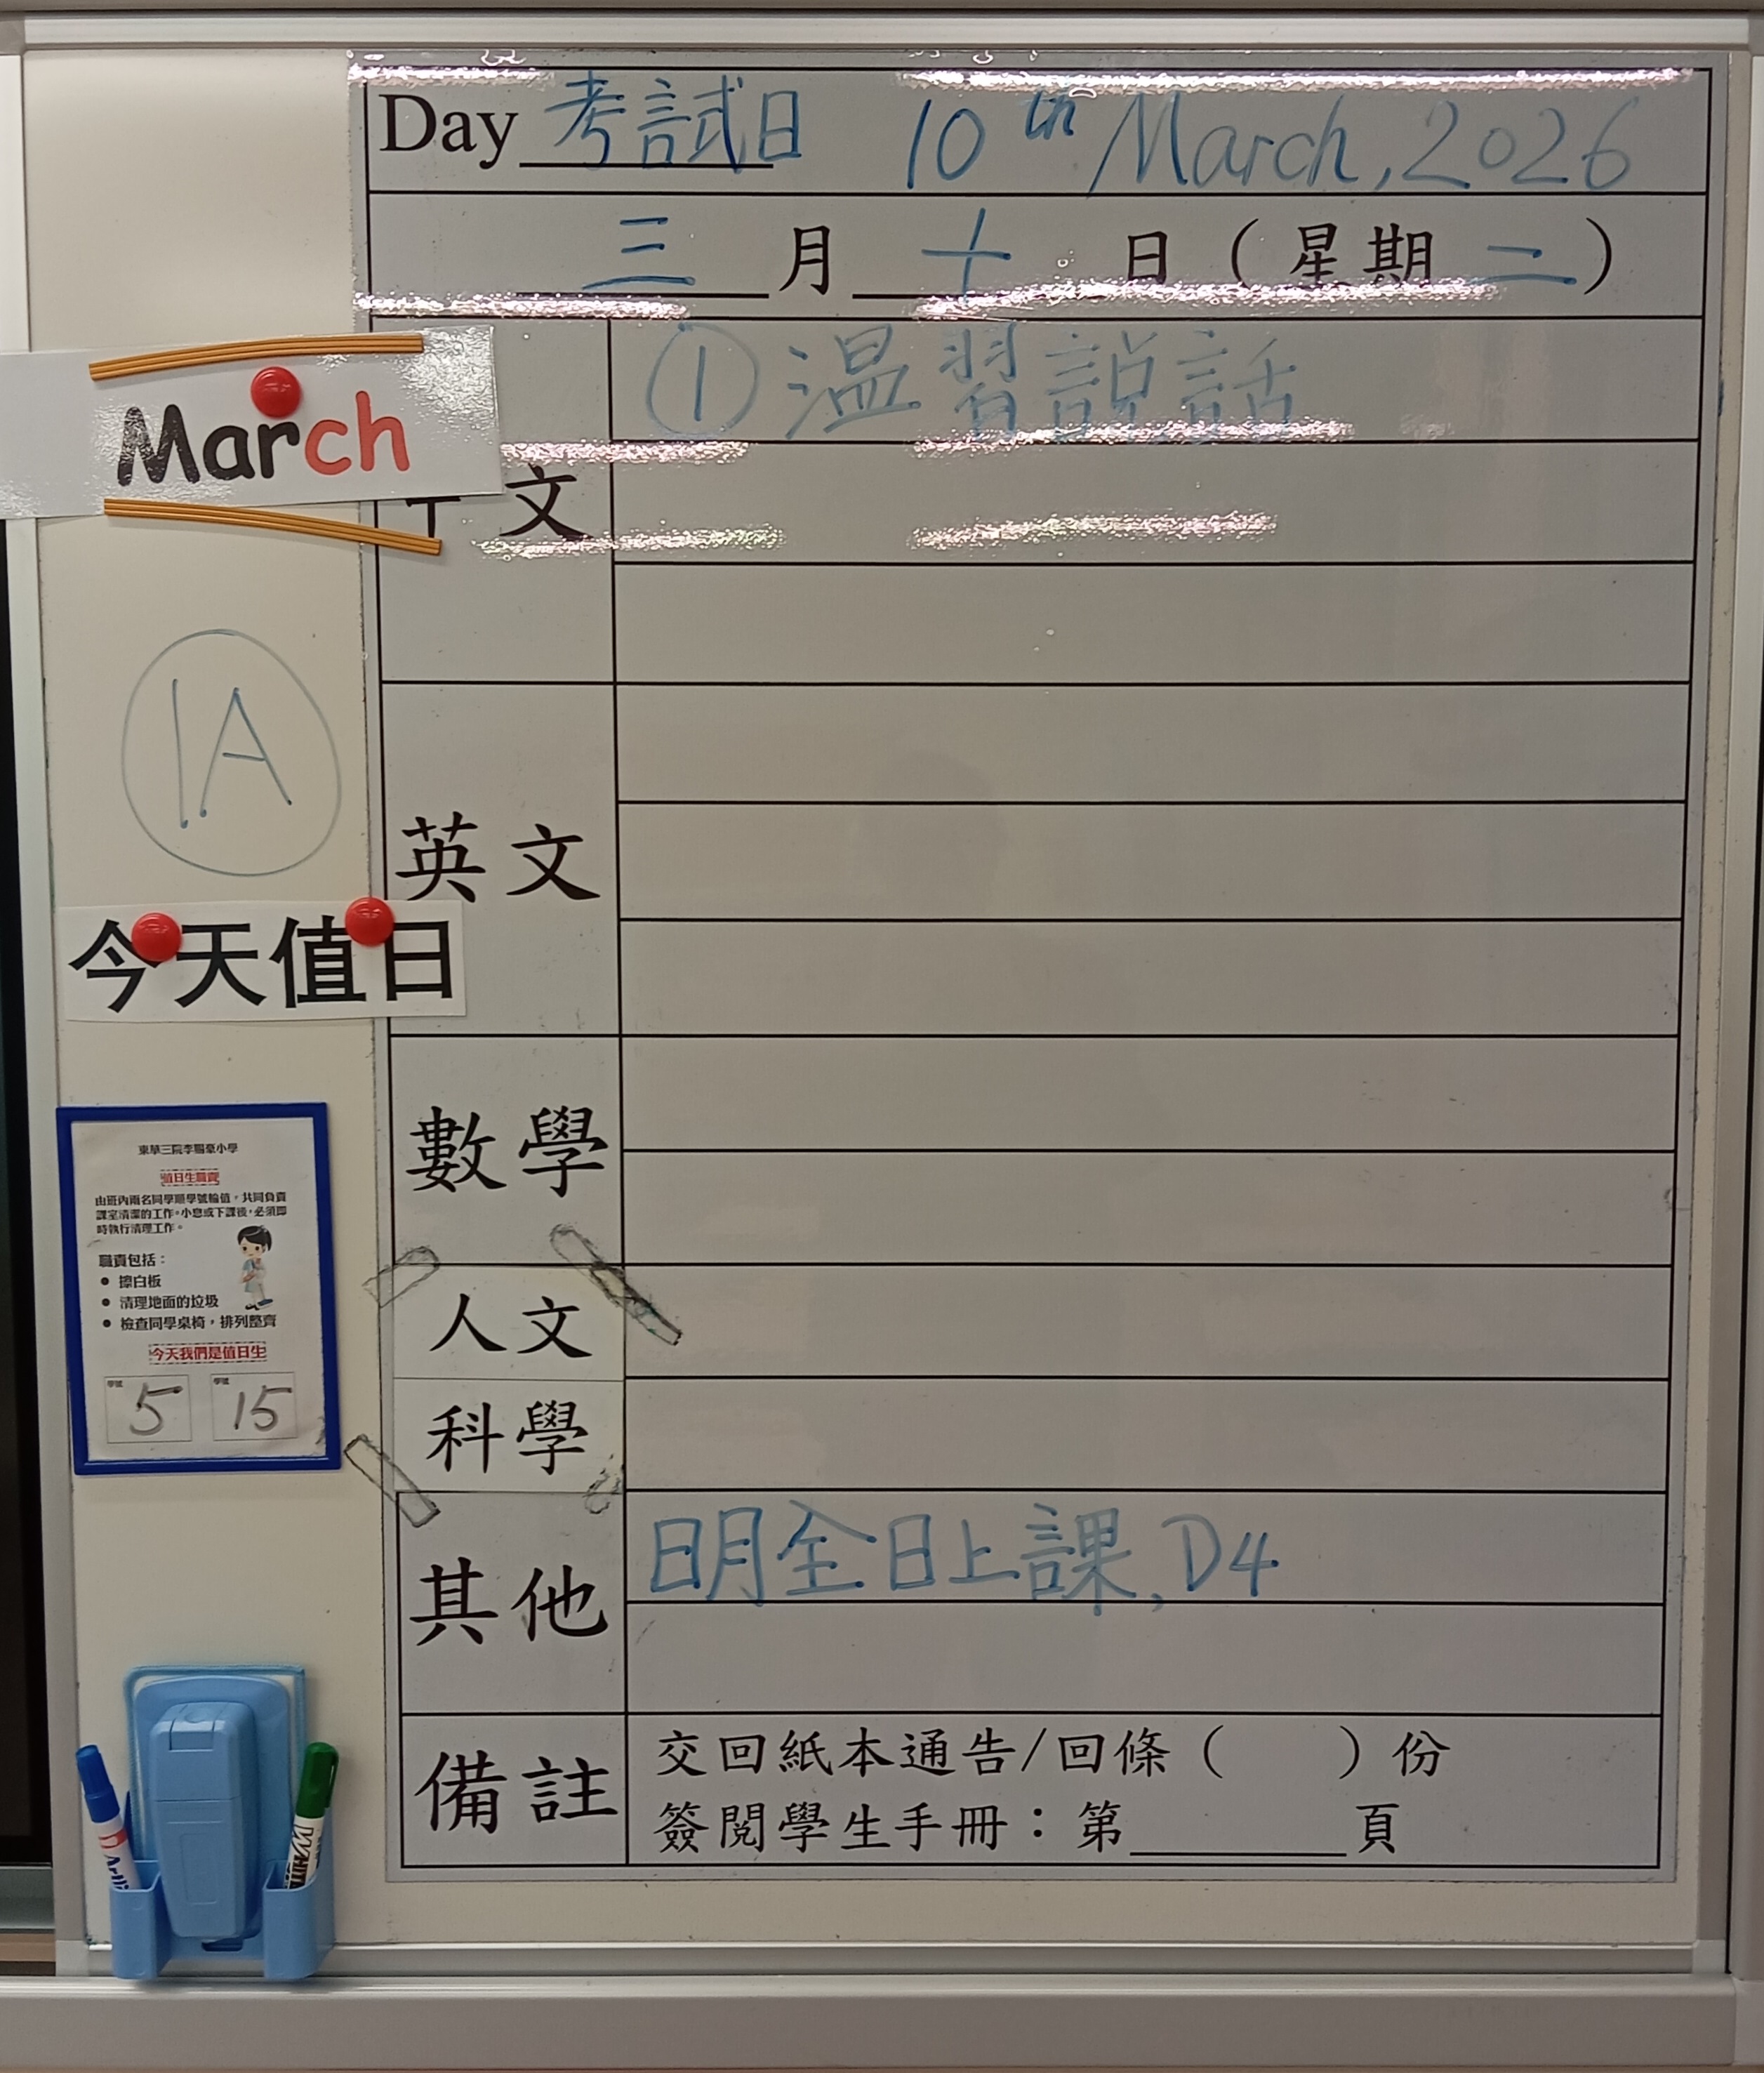 Day 考試日 10th March, 2026
三月十日(星期二)
March
① 温習説話
中文
1.A
英文
今天值日
數學
東華三院李賜豪小學
值日生職責
由班內兩名同學順學號輪值，共同負責
課室清潔的工作。小息或下課後，必須即
時執行清理工作。
職責包括：
● 擦白板
● 清理地面的垃圾
● 檢查同學桌椅，排列整齊
今天我們是值日生
學號 5 學號 15
人文
科學
其他
明全日上課, D4
備註
交回紙本通告/回條( )份
簽閱學生手冊：第______頁